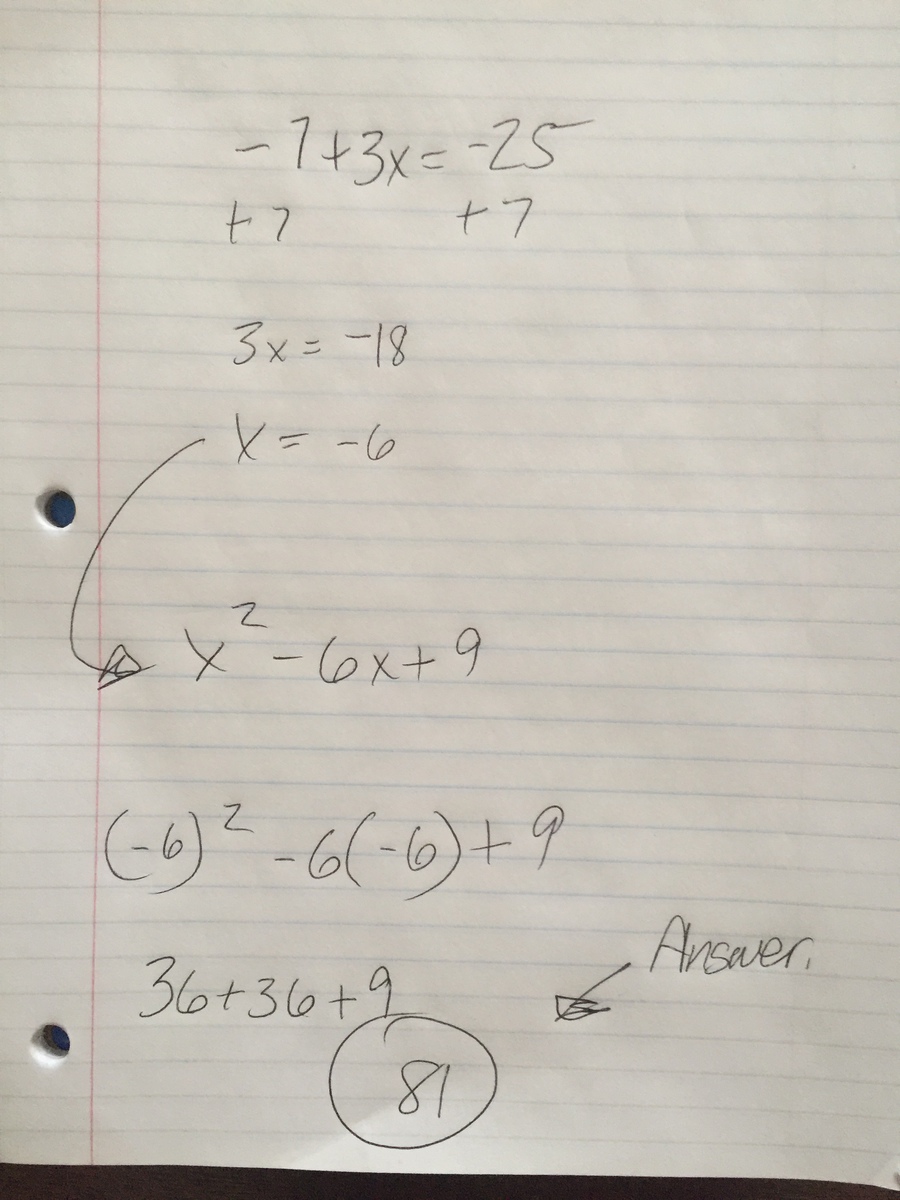 -7+3x=-25
+7 +7
3x=-18
x=-6
x²-6x+9
(-6)²-6(-6)+9
Answer.
36+36+9
81